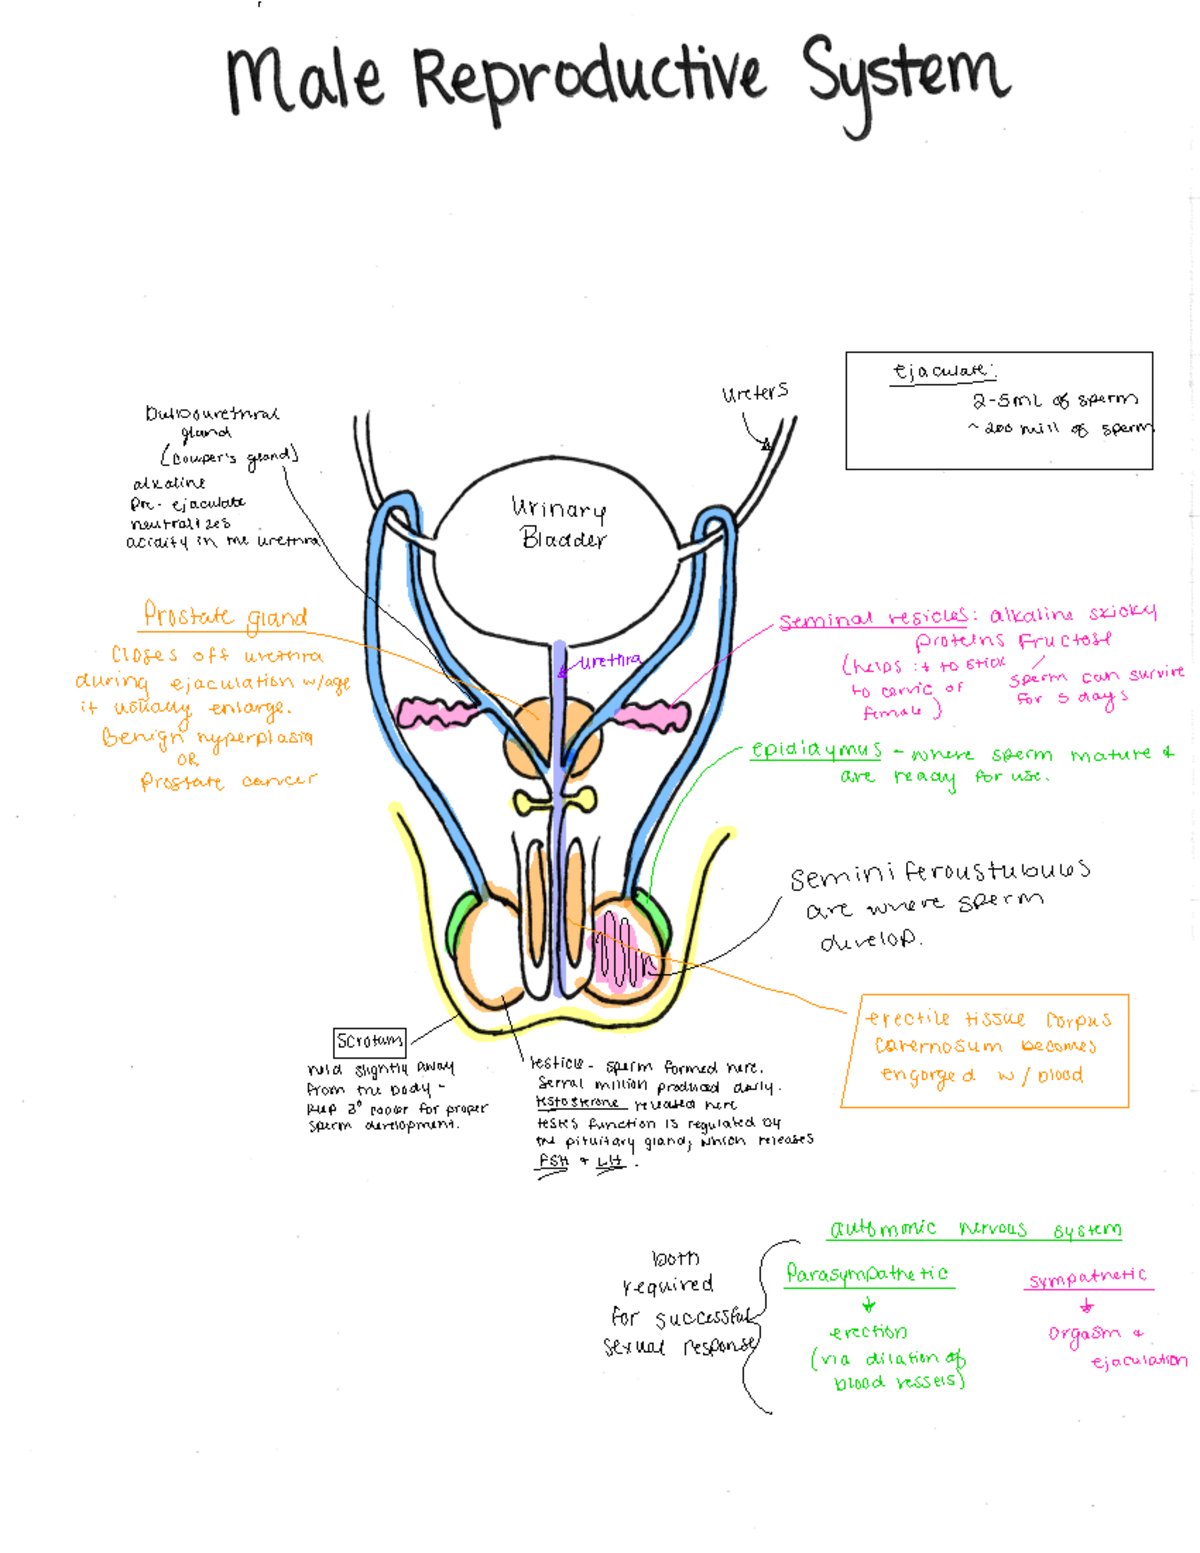 Male Reproductive System
ejaculate:
2-5ml of sperm
~200 mill of sperm
ureters
Bulbourethral
gland
(cowper's gland)
alkaline
pre-ejaculate
neutralizes
acidity in the urethra
Urinary
Bladder
Prostate gland
Closes off urethra
during ejaculation w/age
it usually enlarge.
Benign hyperplasia
OR
Prostate cancer
urethra
Seminal vesicles: alkaline sticky
proteins Fructose
(helps it to stick
to cervic of
female)
sperm can survive
for 5 days
epididymus - where sperm mature &
are ready for use.
Seminiferoustubules
are where sperm
develop.
erectile tissue corpus
cavernosum becomes
engorged w/blood
Scrotum
hold slightly away
from the body -
keep 3° cooler for proper
sperm development.
testicle - sperm formed here.
Serval million produced daily.
testosterone released here
testes function is regulated by
the pituitary gland, which releases
FSH + LH.
both
required
for successful
sexual response
automonic nervous system
Parasympathetic
erection
(via dilation of
blood vessels)
sympathetic
orgasm &
ejaculation